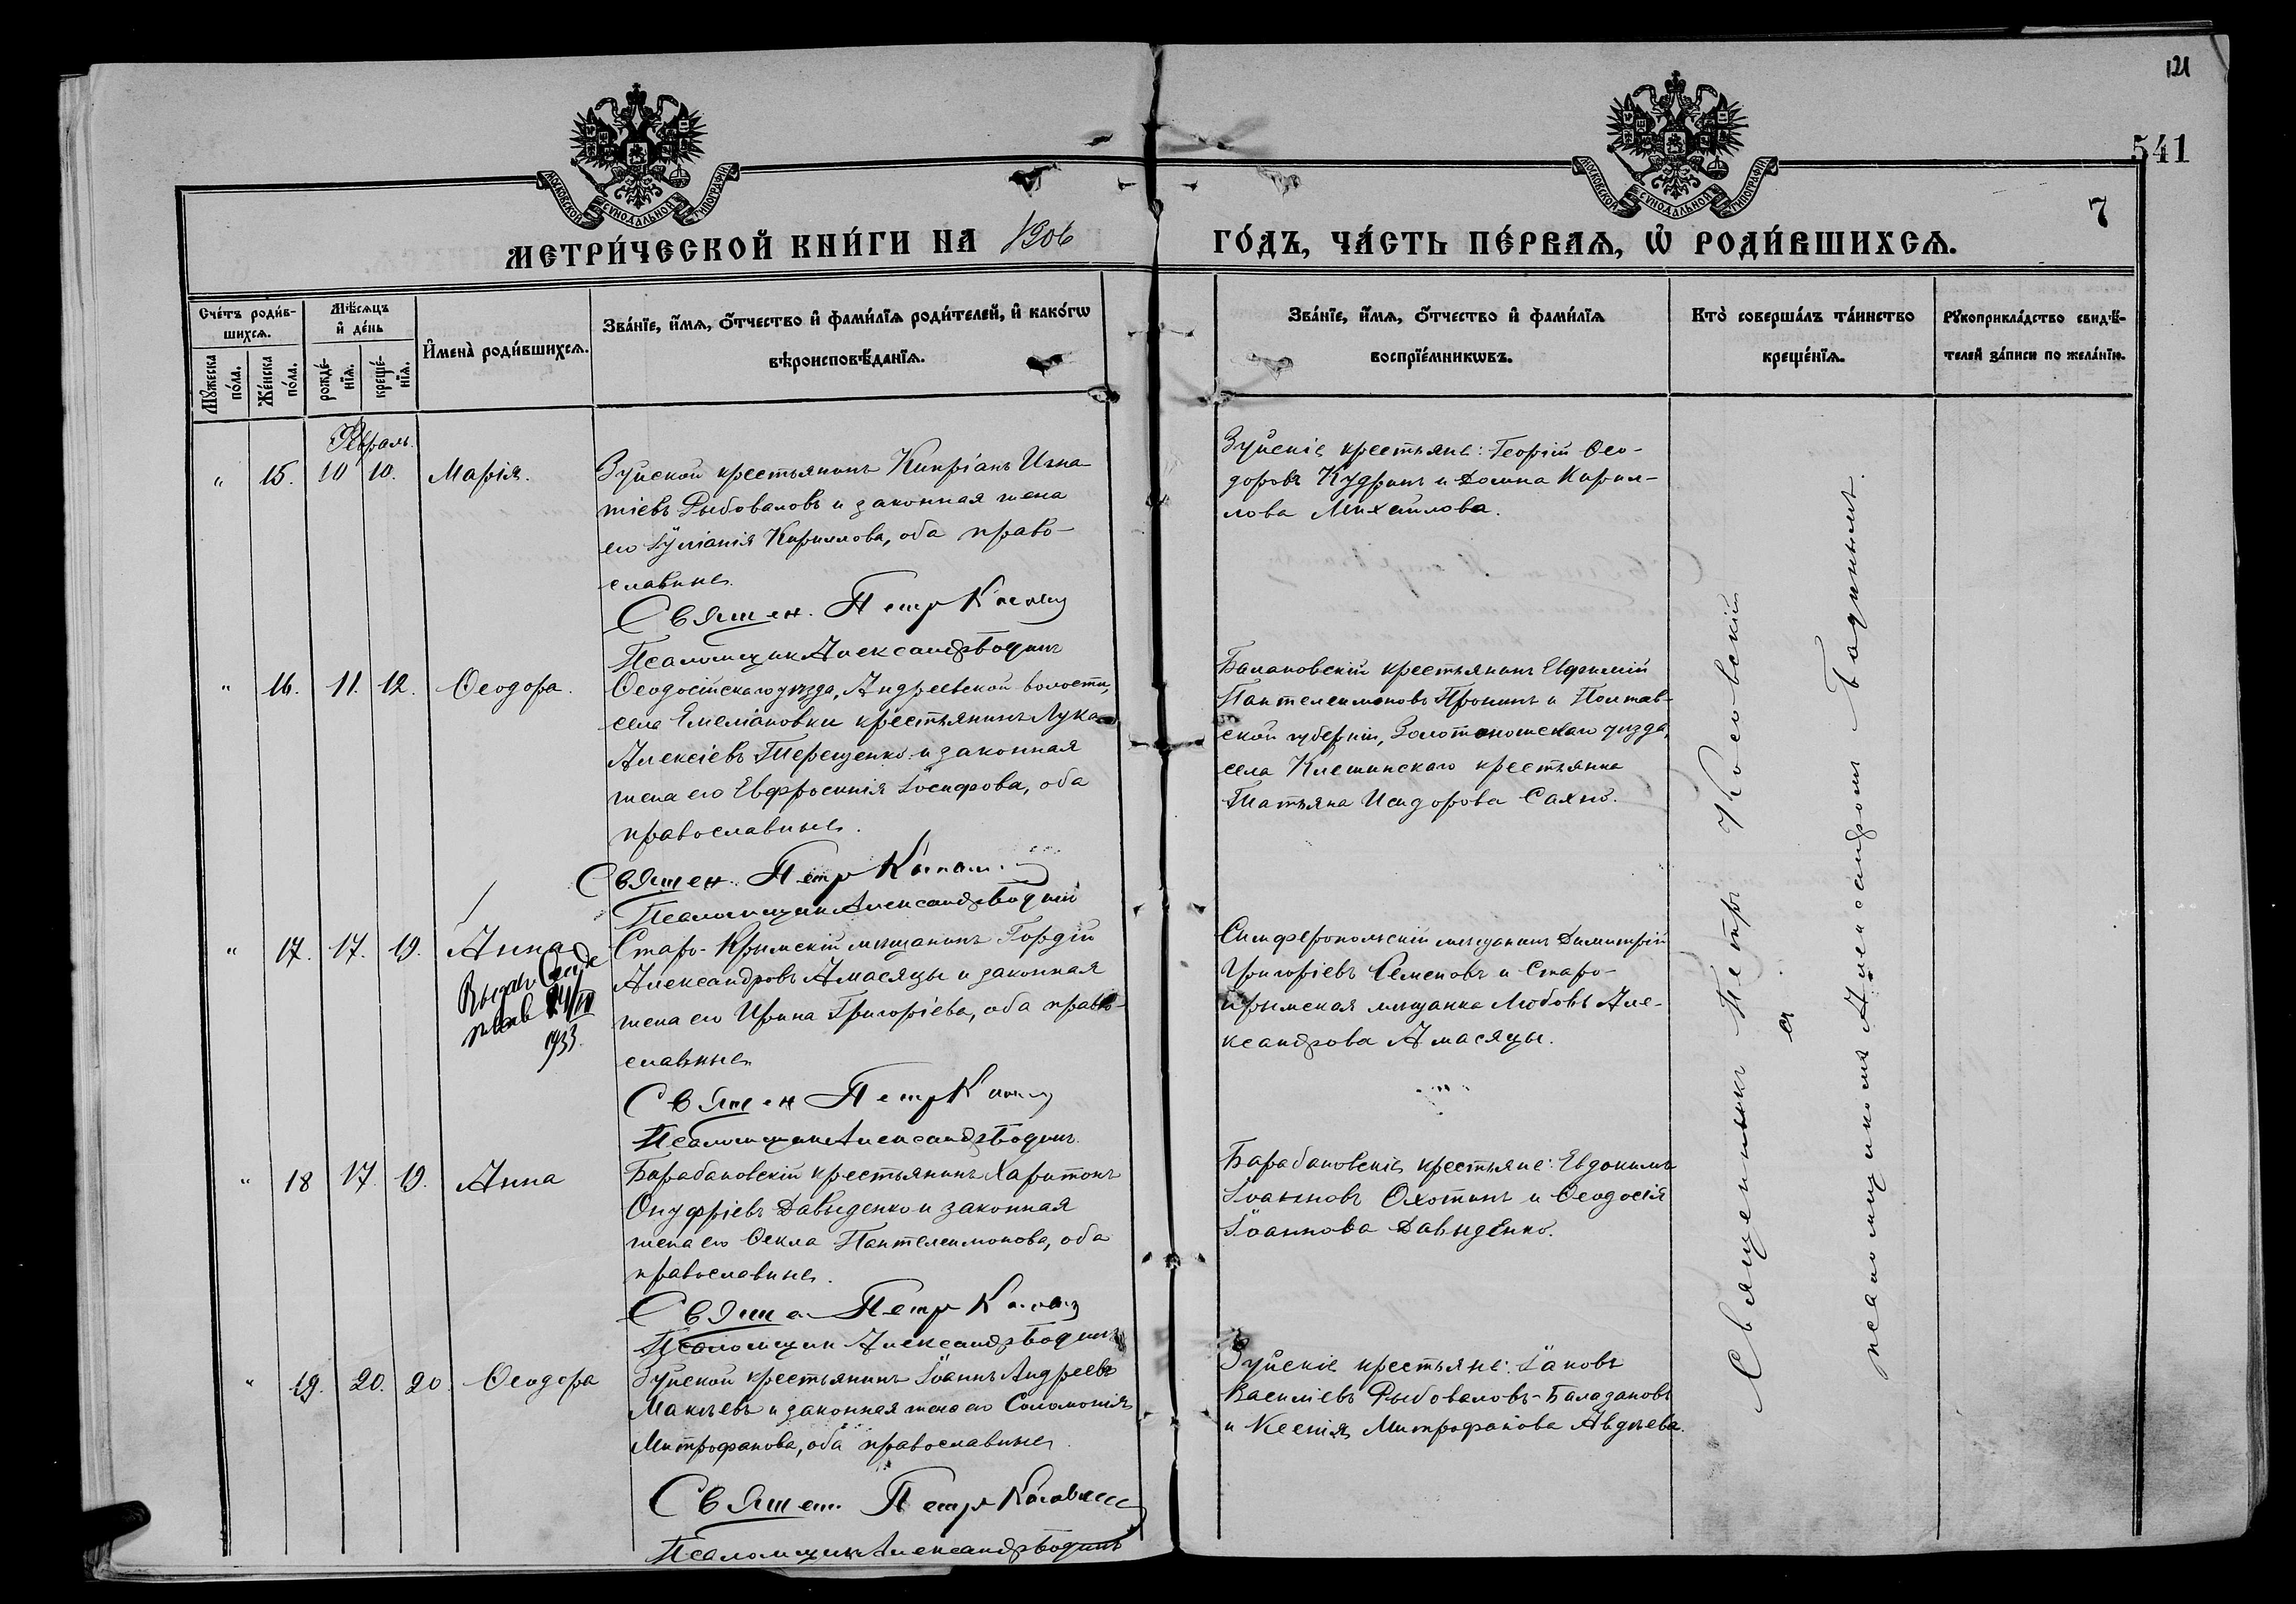 121
541
7
МОСКОВСКОЙ СУНОДАЛЬНОЙ ТИПОГРАФІИ
МОСКОВСКОЙ СУНОДАЛЬНОЙ ТИПОГРАФІИ
МЕТРИ́ЧЕСКОЙ КНИ́ГИ НА 1906
ГО́ДЪ, ЧА́СТЬ ПЕ́РВАѦ, Ѡ҆ РОДИ́ВШИХСѦ.
Сче́тъ роди́в-
шихсѧ.
Мꙋжеска по́ла.
Же́нска по́ла.
Мѣ́сѧцъ
и҆ де́нь
рожде́-
нїѧ.
креще́-
нїѧ.
И҆мена̀ роди́вшихсѧ.
Зва́нїе, и҆́мѧ, ѻ҆́тчество и҆ фами́лїѧ роди́телей, и҆ како́гѡ
вѣроисповѣ́данїѧ.
Зва́нїе, и҆́мѧ, ѻ҆́тчество и҆ фами́лїѧ
воспрїе́мникѡвъ.
Кто̀ соверша́лъ та́инство
креще́нїѧ.
Рꙋкоприкла́дство свидѣ́-
телей за́писи по жела́нїю.
Февраль.
" 15. 10 10. Марія.
Зуйской крестьянинъ Кипріанъ Игна-
тіевъ Рыбоваловъ и законная жена
его Іуліанія Кириллова, оба право-
славные.
Священ. Петр К
Псаломщик Александръ Бодинъ
Зуйскіе крестьяне: Георгій Ѳео-
доровъ Кудринъ и Домна Кирил-
лова Михайлова.
" 16. 11. 12. Ѳеодора.
Ѳеодосійскаго уѣзда, Андреевской волости,
села Емеліановки крестьянинъ Лука
Алексіевъ Терещенко и законная
жена его Евфросинія Іосифова, оба
православные.
Священ. Петр К
Псаломщик Александръ Бодинъ
Балановскій крестьянинъ Евфимій
Пантелеимоновъ Пронинъ и Полтав-
ской губерніи, Золотоношскаго уѣзда,
села Клешинскаго крестьянка
Татьяна Исидорова Сахно.
" 17. 17. 19. Анна
Старо-Крымскій мѣщанинъ Гордій
Александровъ Амасяцы и законная
жена его Ирина Григоріева, оба право-
славные.
Выдан
1933.
Священ Петр К
Псаломщик Александръ Бодинъ.
Симферопольскій мѣщанинъ Димитрій
Григоріевъ Семеновъ и Старо-
крымская мѣщанка Любовь Але-
ксандрова Амасяцы.
" 18 17. 19. Анна
Барабановскій крестьянинъ Харитонъ
Онуфріевъ Давыденко и законная
жена его Ѳекла Пантелеимонова, оба
православные.
Свящ Петр К
Псаломщик Александръ Бодинъ
Барабановскіе крестьяне: Евдокимъ
Іоанновъ Охотинъ и Ѳеодосія
Іоаннова Давыденко.
" 19. 20. 20. Ѳеодора
Зуйской крестьянинъ Іоаннъ Андреевъ
Макѣевъ и законная жена его Соломонія
Митрофанова, оба православные.
Священ. Петр
Псаломщик Александръ Бодинъ
Зуйскіе крестьяне: Іаковъ
Василіевъ Рыбоваловъ-Балазановъ
и Ксенія Митрофанова Авдѣева.
Священникъ Петръ Косовскій
съ
псаломщикомъ Александромъ Бодинымъ.